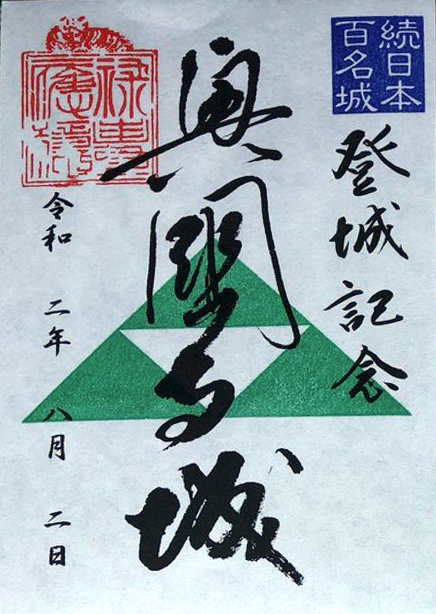 続日本
百名城
登城記念
興國寺城
祿壽
應穩
令和 二年 八月 二日